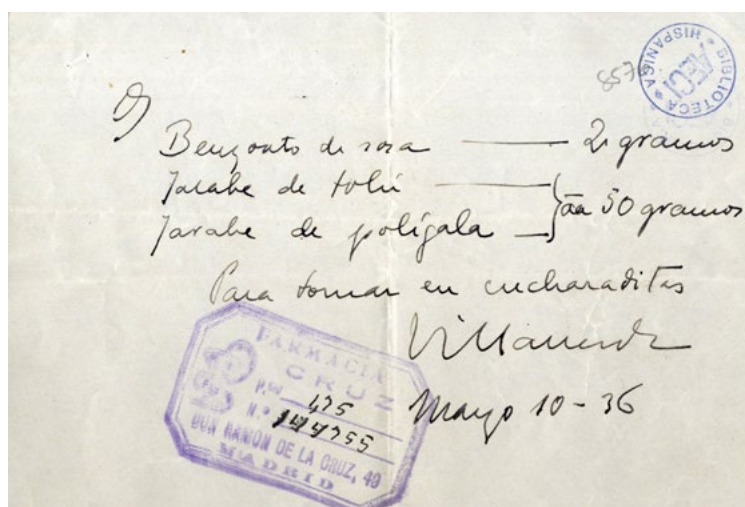 BIBLIOTECA HISPANICA
AECI
857
Benzoato de sosa — 2 gramos
Jarabe de tolú —
Jarabe de polígala — } āa 50 gramos
Para tomar en cucharaditas
Villaverde
Mayo 10-36
FARMACIA
CRUZ
475
N.º 144755
DON RAMON DE LA CRUZ, 49
MADRID